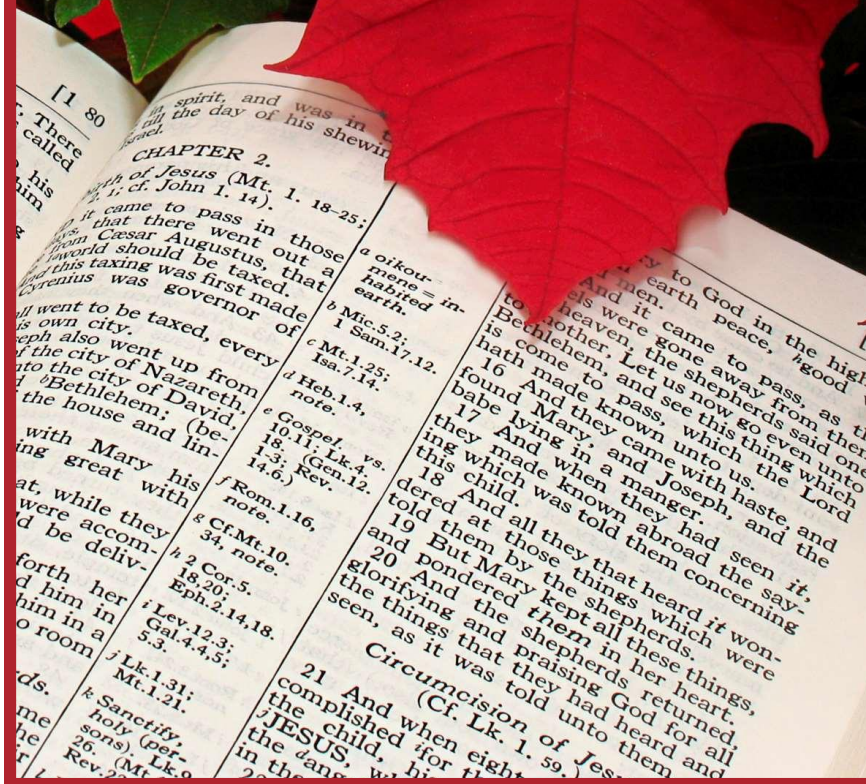 [1 80
There
called
his
him
in spirit, and was in
till the day of his shewin
Israel.
CHAPTER 2.
birth of Jesus (Mt. 1. 18-25;
2. 1; cf. John 1. 14).
it came to pass in those
days, that there went out a
from Cæsar Augustus, that
world should be taxed.
this taxing was first made
Cyrenius was governor of
all went to be taxed, every
his own city.
Joseph also went up from
of the city of Nazareth,
into the city of David,
Bethlehem; (be-
the house and lin-
with Mary his
ing great with
at, while they
were accom-
d be deliv-
forth her
d him in
him in a
o room
rds.
me
he
a oikou-
mene = in-
habited
earth.
b Mic.5.2;
1 Sam.17.12.
c Mt.1.25;
Isa.7.14.
d Heb.1.4,
note.
e Gospel. vs.
10.11; Lk.4.
18. (Gen.12.
1-3; Rev.
14.6.)
f Rom.1.16,
note.
g Cf.Mt.10.
34, note.
h 2 Cor.5.
18,20;
Eph.2.14,18.
i Lev.12.3;
Gal.4.4,5;
5.3.
j Lk.1.31;
Mt.1.21.
k Sanctify,
holy (per-
sons). Lk.9.
26. (Mt.
Rev.22
to God in the high
earth peace, good
men.
And it came to pass, as
els were gone away from them
to heaven, the shepherds said one
to another, Let us now go even unto
Bethlehem, and see this thing which
is come to pass, which the Lord
hath made known unto us.
16 And they came with haste, and
found Mary, and Joseph, and the
babe lying in a manger.
17 And when they had seen it,
they made known abroad the say-
ing which was told them concerning
this child.
18 And all they that heard it won-
dered at those things which were
told them by the shepherds.
19 But Mary kept all these things,
and pondered them in her heart.
20 And the shepherds returned,
glorifying and praising God for all
the things that they had heard and
seen, as it was told unto them
Circumcision of Jes
(Cf. Lk. 1. 59.)
21 And when eight
complished for th
the child, hi
JESUS, wh
the ang
in the